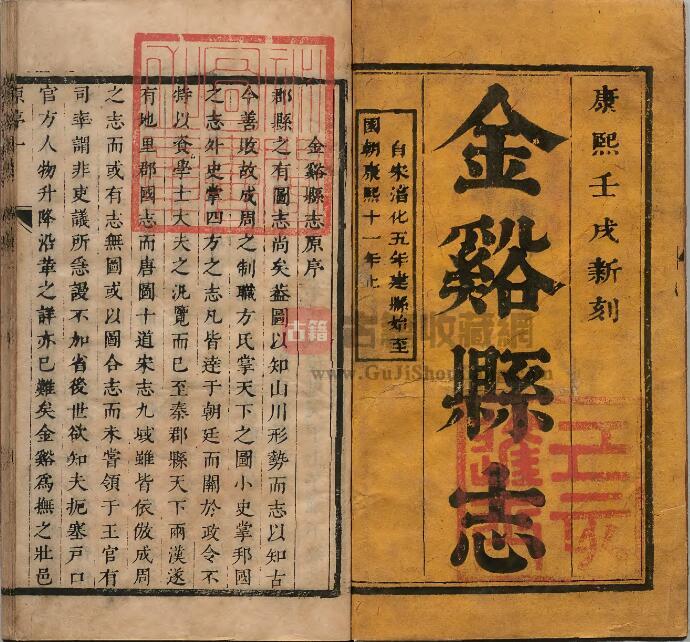 康熙壬戌新刻
金谿縣志
自宋淳化五年建縣始至
國朝康熙十一年止
金谿縣志原序
郡縣之有圖志尚矣葢圖以知山川形勢而志以知古
今善敗故成周之制職方氏掌天下之圖小史掌邦國
之志外史掌四方之志凡皆達于朝廷而關於政令不
特以資學士大夫之汎覽而巳至秦郡縣天下兩漢遂
有地里郡國志而唐圖十道宋志九域雖皆依倣成周
之志而或有志無圖或以圖合志而未嘗領于王官有
司率謂非吏議所急謾不加省後世欲知夫扼塞戸口
官方人物升降沿革之詳亦巳難矣金谿爲撫之壯邑
原序一
古籍
古籍收藏網
www.GuJiShou